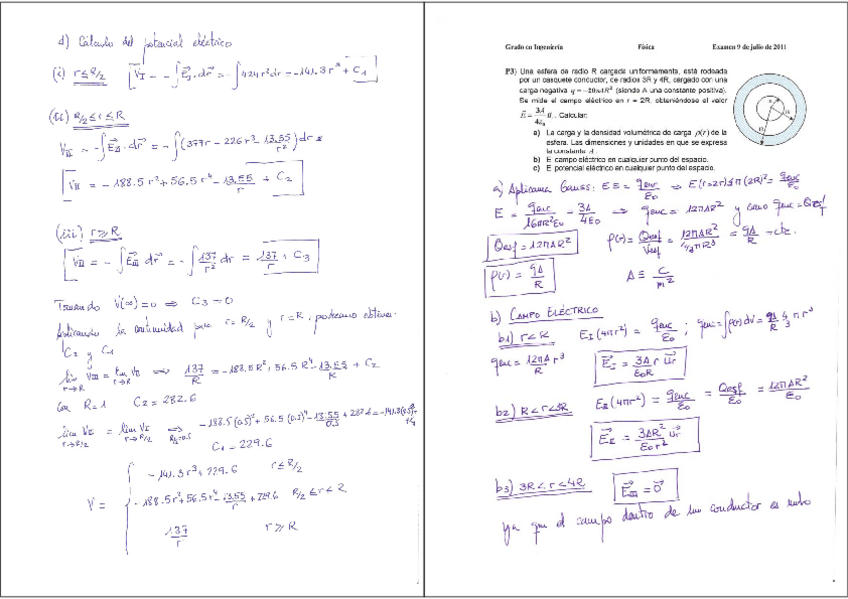 d) Cálculo del potencial eléctrico
(i) r≤R/2 V_I = -∫E_I·dr = -∫424r²dr = -141.3r³ + C_1
(ii) R/2≤r≤R
V_II = -∫E_II·dr = -∫(377r - 226r³ - 13.55/r²)dr
V_II = -188.5r² + 56.5r⁴ - 13.55/r + C_2
(iii) r≥R
V_III = -∫E_III dr = -∫137/r² dr = 137/r + C_3
Tomando V(∞)=0 ⇒ C_3=0
Aplicando la continuidad para r=R/2 y r=R podemos obtener
C_2 y C_1
lim V_III = lim V_II ⇒ 137/R = -188.5R² + 56.5R⁴ - 13.55/R + C_2
r→R r→R
Con R=1 C_2=282.6
lim V_I = lim V_II ⇒ -188.5(0.5)² + 56.5(0.5)⁴ - 13.55/0.5 + 282.6 = -141.3(0.5)³
r→R/2 r→R/2 R/2=0.5 +C_1
C_1 = 229.6
-141.3r³+229.6 r≤R/2
V = -188.5r²+56.5r⁴-13.55/r+229.6 R/2≤r≤R
137/r r≥R
Grado en Ingeniería Física Examen 9 de julio de 2011
P3) Una esfera de radio R cargada uniformemente, está rodeada
por un casquete conductor, de radios 3R y 4R, cargado con una
carga negativa q = -20πAR² (siendo A una constante positiva).
Se mide el campo eléctrico en r = 2R, obteniéndose el valor
E = 3A/4ε₀ u_r. Calcular:
a) La carga y la densidad volumétrica de carga ρ(r) de la
esfera. Las dimensiones y unidades en que se expresa
la constante A.
b) E campo eléctrico en cualquier punto del espacio.
c) E potencial eléctrico en cualquier punto del espacio.
a) Aplicamos Gauss: = q_enc/ε₀ ⇒ E(r=2R)4π(2R)² = q_enc/ε₀
E = q_enc/16πR²ε₀ = 3A/4ε₀ ⇒ q_enc = 12πAR² y como q_enc = Q_esf
Q_esf = 12πAR² ρ(r) = Q_esf/V_esf = 12πAR²/(4/3πR³) = 9A/R = cte.
ρ(r) = 9A/R A ≡ C/m²
b) CAMPO ELÉCTRICO
b1) r<R E_I(4πr²) = q_enc/ε₀ ; q_enc = ∫ρ(r)dv = 9A/R 4/3 πr³
q_enc = 12πAr³/R E_I = 3Ar/ε₀R u_r
b2) R<r<3R E_II(4πr²) = q_enc/ε₀ = Q_esf/ε₀ = 12πAR²/ε₀
E_II = 3AR²/ε₀r² u_r
b3) 3R<r<4R E_III = 0
ya que el campo dentro de un conductor es nulo